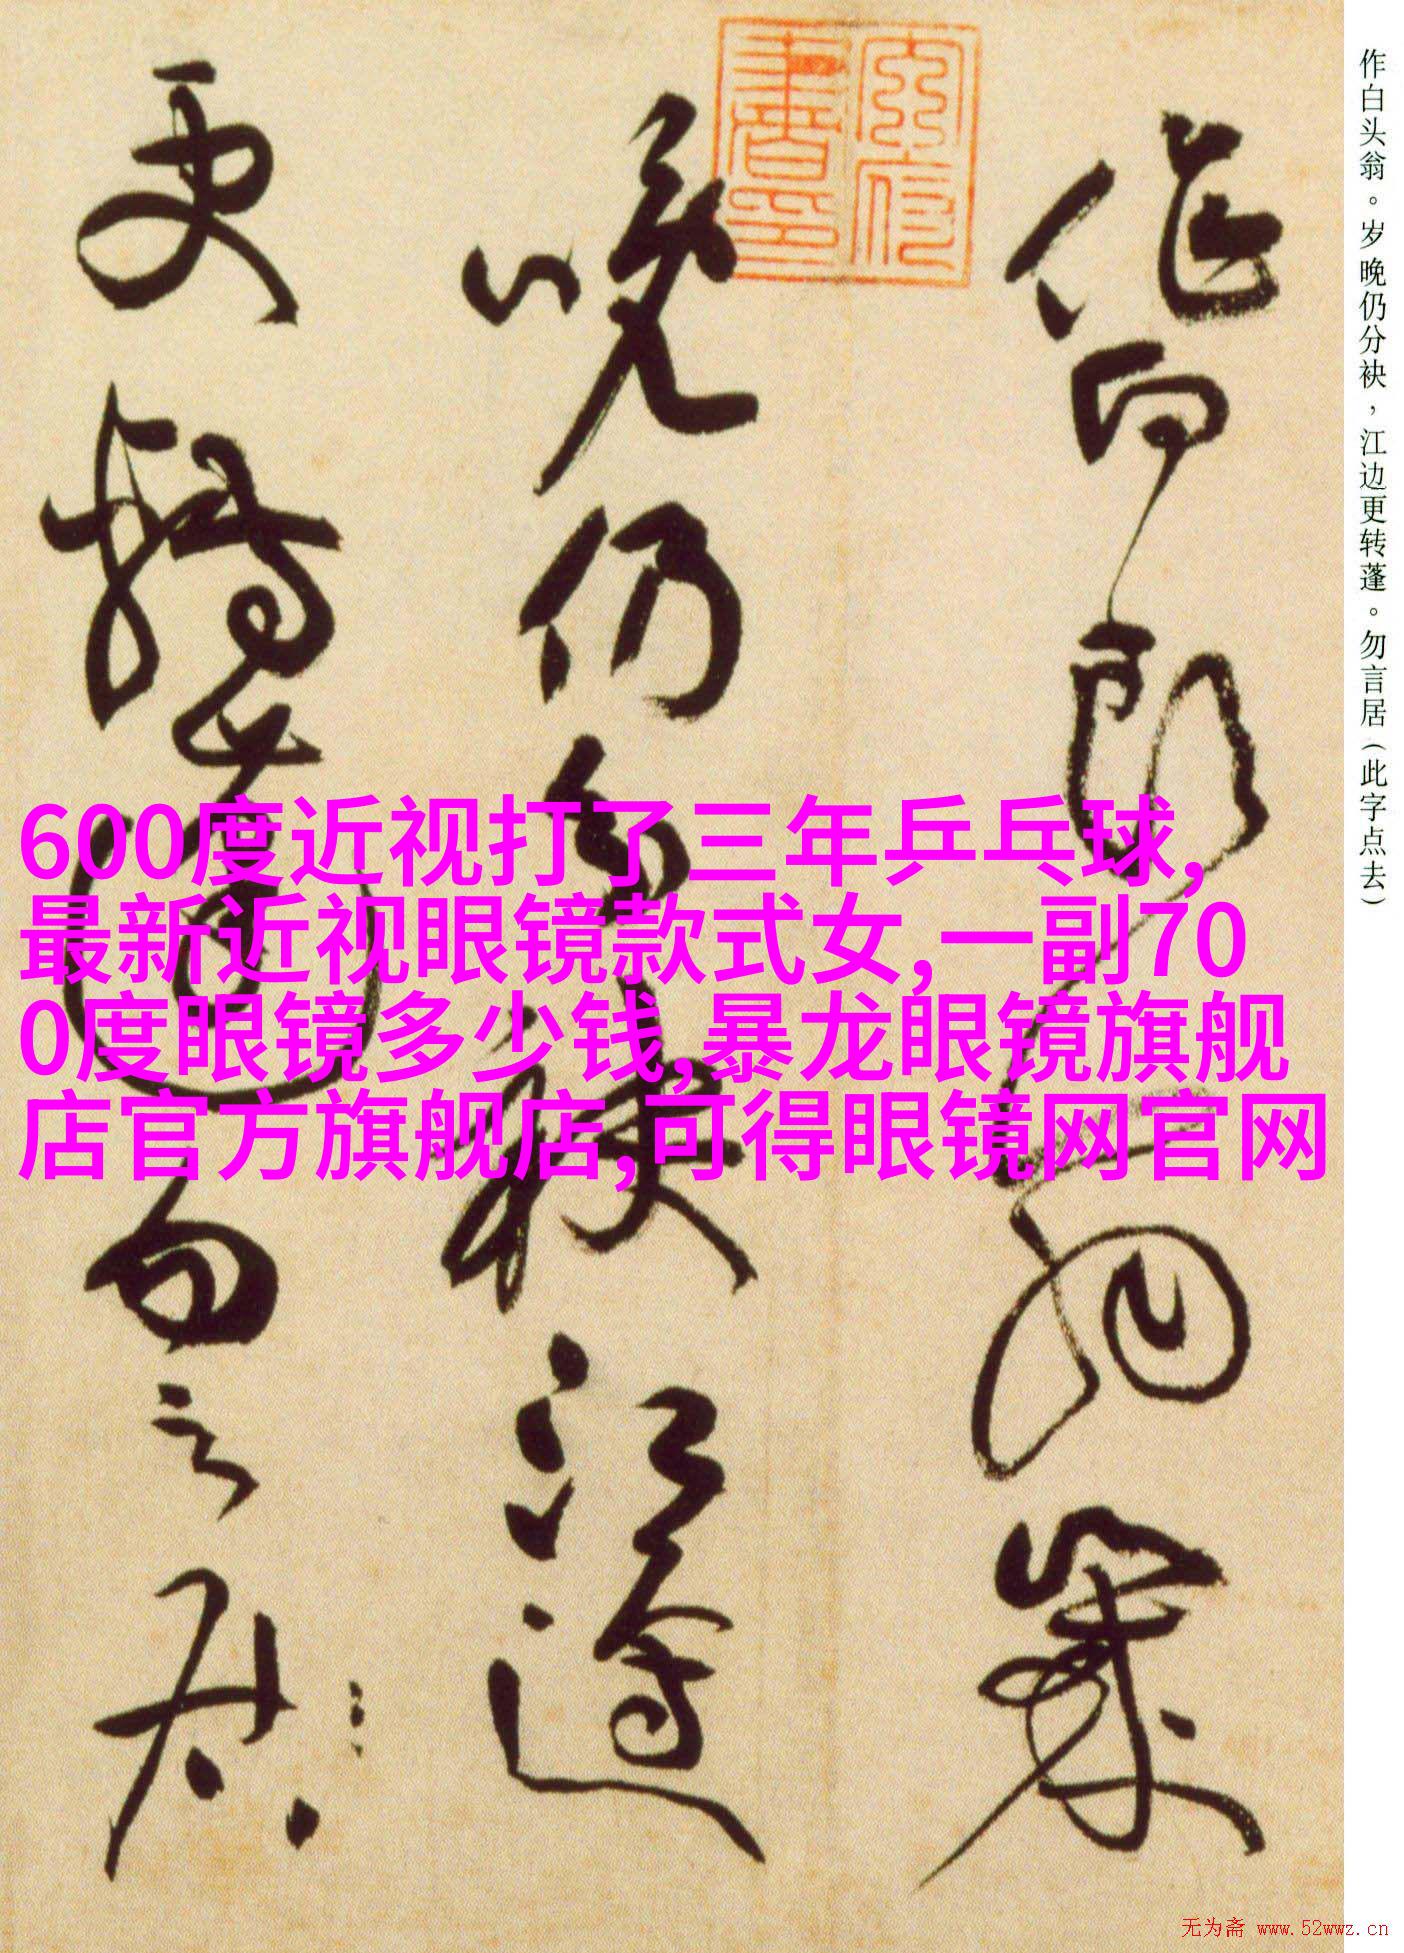 作白头翁。岁晚仍分袂，江边更转蓬。勿言居（此字点去）
作白头翁岁
晚仍分袂江边
更转蓬勿言居
600度近视打了三年乒乓球,
最新近视眼镜款式女,一副70
0度眼镜多少钱,暴龙眼镜旗舰
店官方旗舰店,可得眼镜网官网
无为斋 www.52wwz.cn